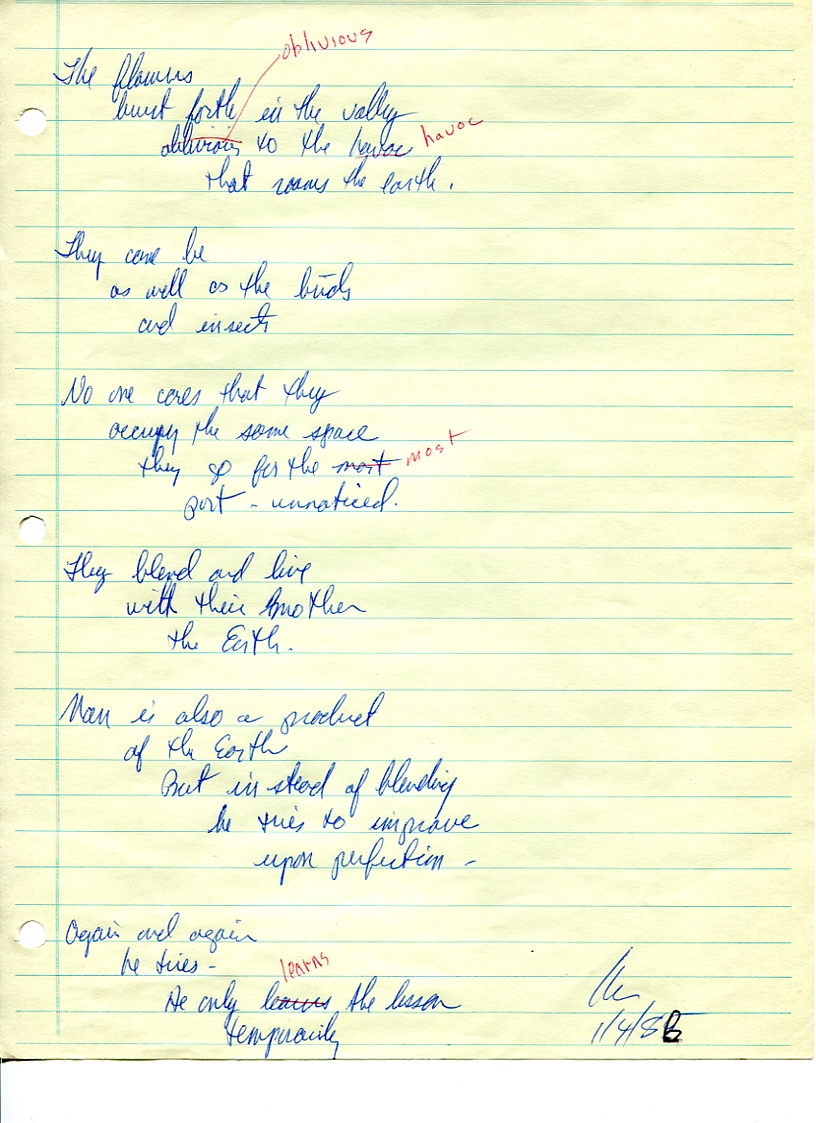 oblivious
The flowers
burst forth in the valley
oblivious to the havoc havoc
that roams the earth.
They come be
as well as the birds
and insects
No one cares that they
occupy the same space
they go for the most most
part - unnoticed.
They blend and live
with their mother
the Earth.
Man is also a product
of the Earth
But in stead of blending
he tries to improve
upon perfection -
Again and again
he tries -
learns
He only learns the lesson
temporarily
1/4/85